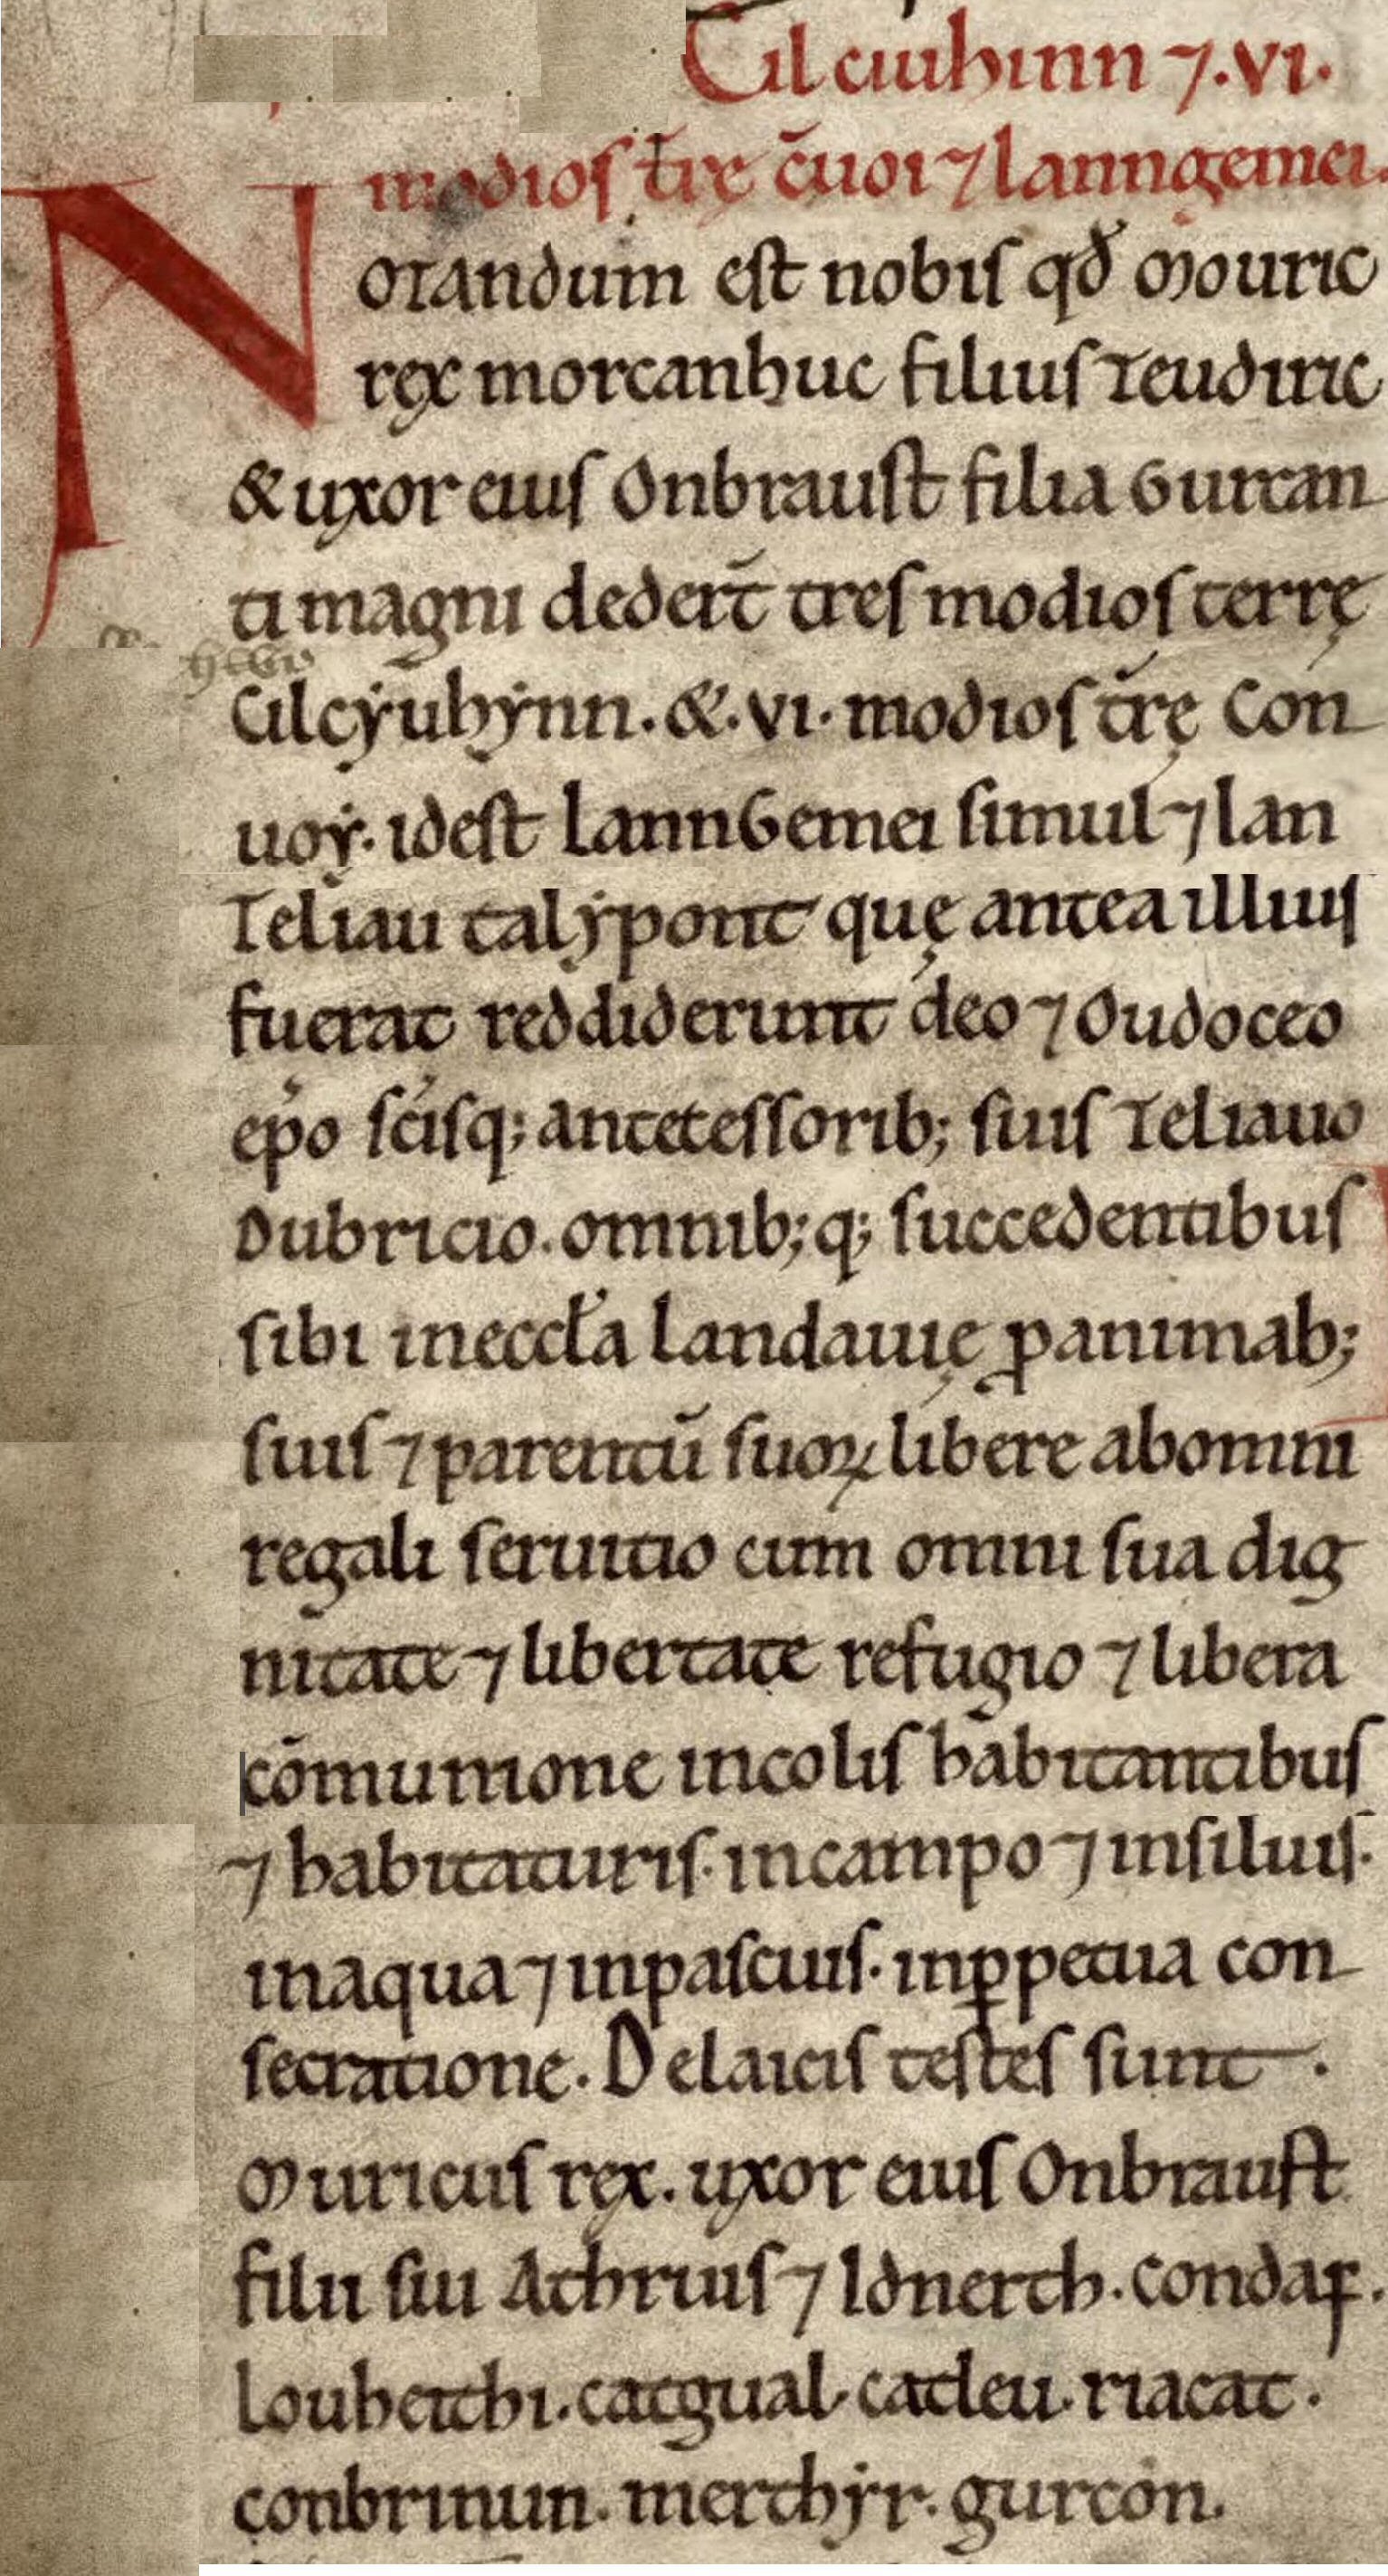 Cil ciuhinn ⁊ .vi.
modios tr̄ę c̄uoi ⁊ lanngemei.
Notandum est nobis qđ Mouric
rex morcanhuc filius Teudiric
& uxor eius Onbraust filia Gurcan
ti magni dedert̄ tres modios terrę
Cilcẏuhẏnn. & .vi. modios tr̄ę Con
uoẏ. idest LannGemei simul ⁊ lan
Teliau talẏpont quę antea illius
fuerat reddiderunt deo ⁊ Oudoceo
ep̄o sc̄isq; antecessorib; suis Teliauo
Dubricio. omnib;q; succedentibus
sibi ineccła Landauię ꝓanimab;
suis ⁊ parentū suoꝝ libere abomni
regali seruitio cum omni sua dig
nitate ⁊ libertate refugio ⁊ libera
cōmunione incolis habitantibus
⁊ habitaturis. incampo ⁊ insiluis.
inaqua ⁊ inpascuis. inꝑpetua con
secratione. Delaicis testes sunt .
Mouricus rex. uxor eius Onbraust
filii sui Athruis ⁊ Idnerth. condaf.
Louheithi. catgual. catleu. riacat.
conbrinun. merthẏr. gurcon.